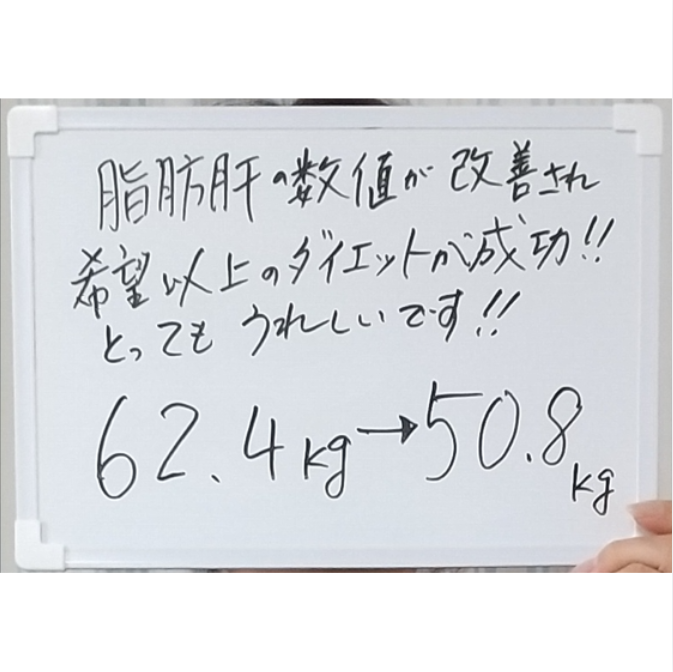 脂肪肝の数値が改善され
希望以上のダイエットが成功!!
とってもうれしいです!!
62.4kg→50.8kg